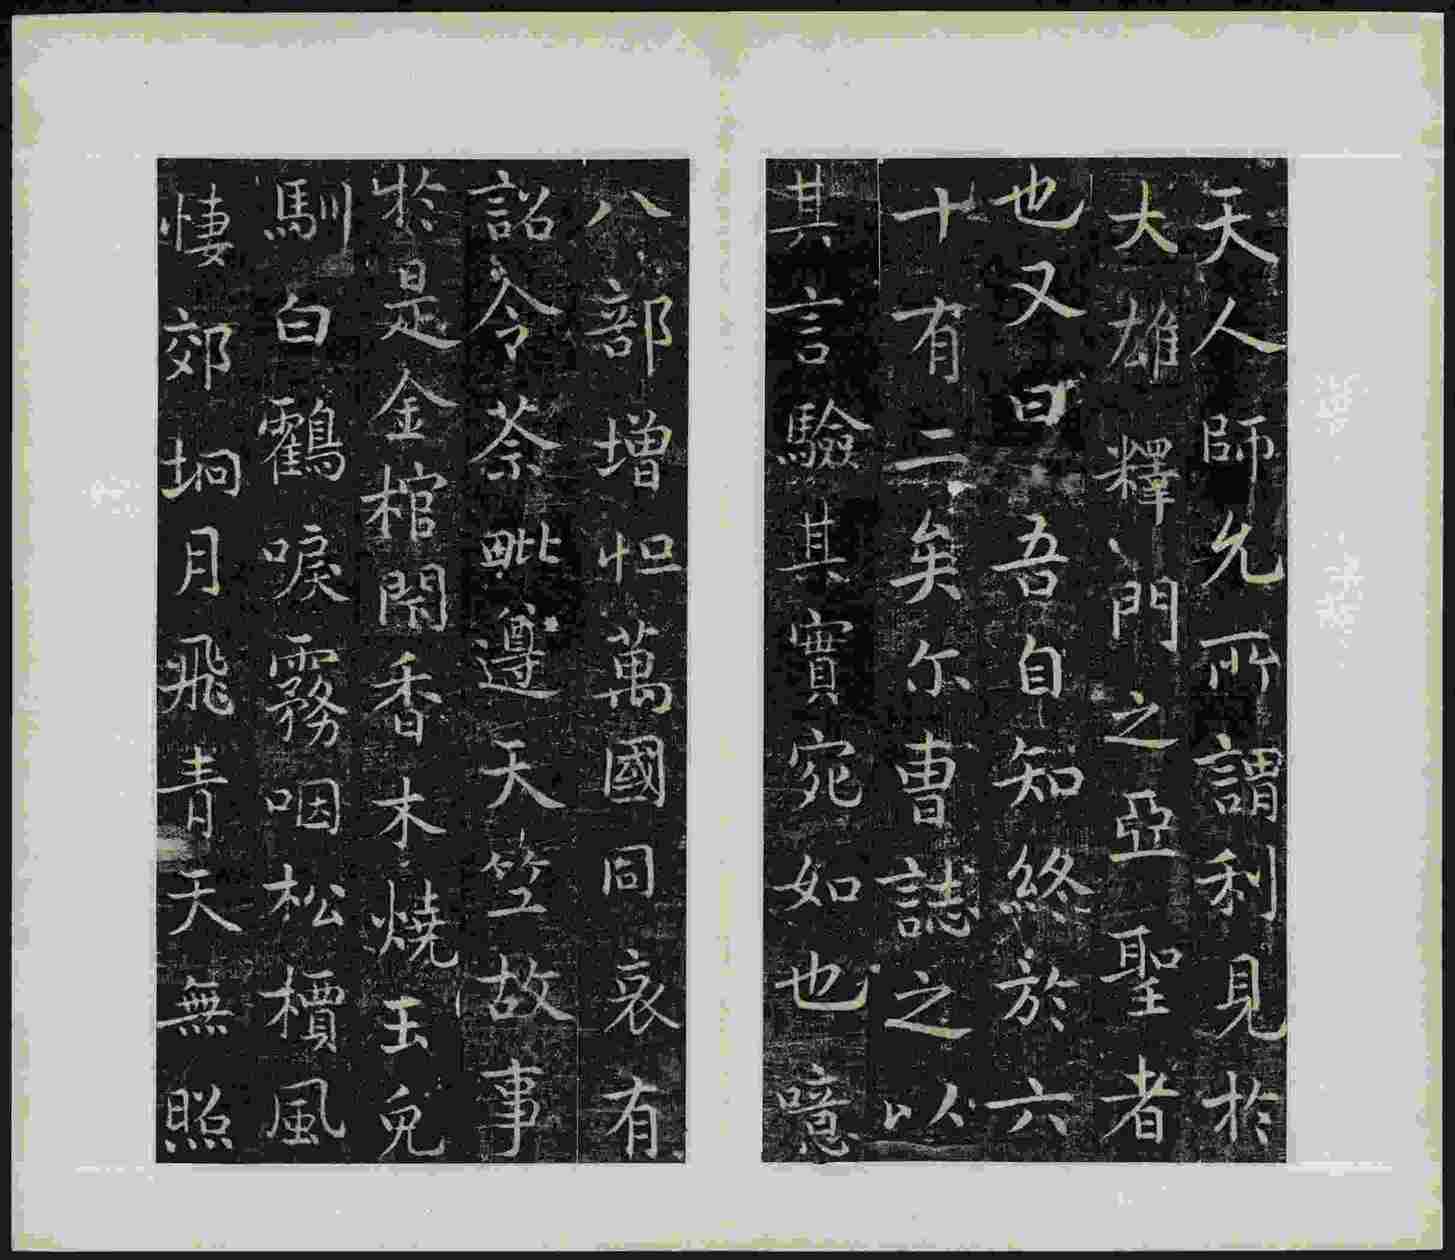 天人師允所謂利見於
大雄釋門之亞聖者
也又曰吾自知終於六
十有二矣尔曹誌之以
其言驗其實宛如也噫
八部增怛萬國同哀有
詔令荼毗遵天竺故事
於是金棺閇香木燒玉兔
馴白鸖唳霧咽松檟風
悽郊坰月飛青天無照